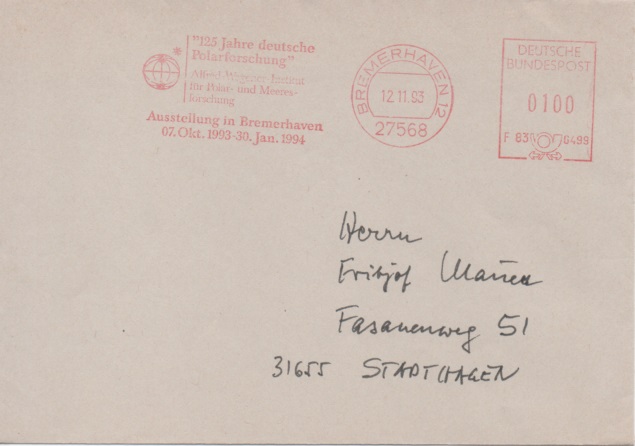 "125 Jahre deutsche
Polarforschung"
Alfred-Wegener-Institut
für Polar- und Meeres-
forschung
Ausstellung in Bremerhaven
07. Okt. 1993-30. Jan. 1994
BREMERHAVEN 12
12.11.93
27568
DEUTSCHE
BUNDESPOST
0100
F 83 0499
Herrn
Fritjof
Fasanenweg 51
31655 STADTHAGEN